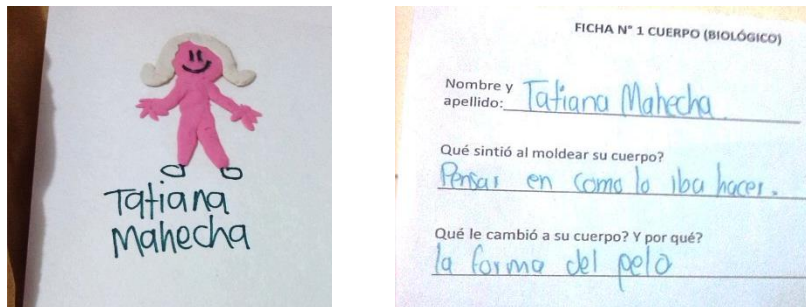 Tatiana
Mahecha
FICHA N° 1 CUERPO (BIOLÓGICO)
Nombre y
apellido: Tatiana Mahecha
Qué sintió al moldear su cuerpo?
Pensar en como lo iba hacer.
Qué le cambió a su cuerpo? Y por qué?
la forma del pelo